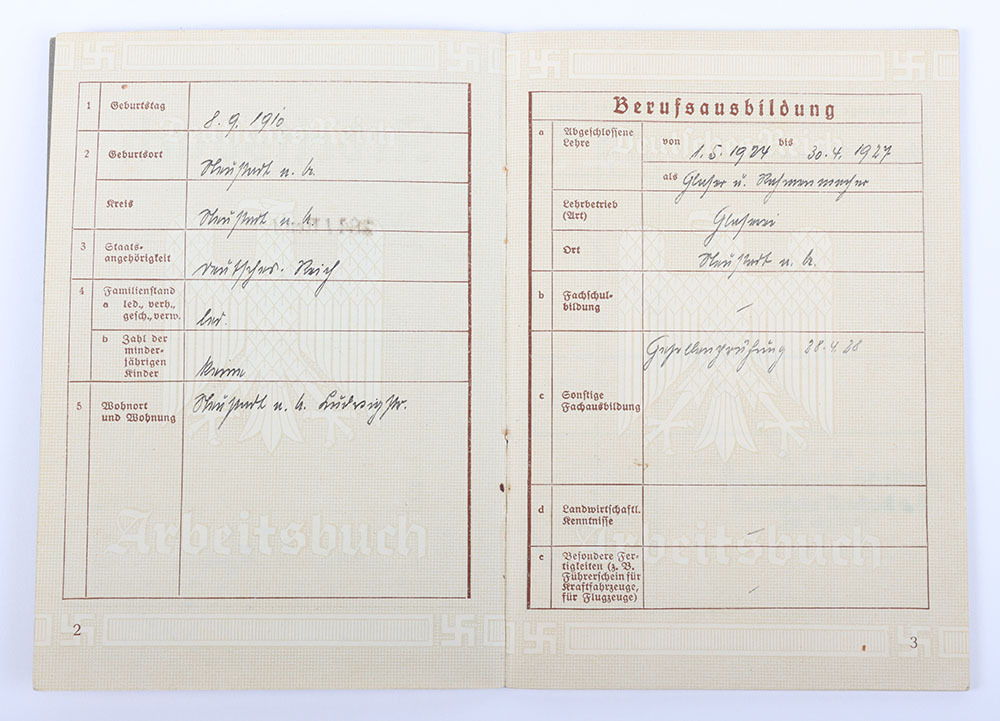 1 Geburtstag
8. 9. 1910
2 Geburtsort
Neustadt a. H.
Kreis
Neustadt a. H.
3 Staats-
angehörigkeit
Deutsches Reich
4 Familienstand
a led., verh.,
gesch., verw.
led.
b Zahl der
minder-
jährigen
Kinder
Keine
5 Wohnort
und Wohnung
Neustadt a. H. Ludwigstr.
Arbeitsbuch
2
Berufsausbildung
a Abgeschlossene
Lehre
von 1. 5. 1924 bis 30. 4. 1927
als Glaser u. Rahmenmacher
Lehrbetrieb
(Art)
Glaserei
Ort
Neustadt a. H.
b Fachschul-
bildung
—
Gesellenprüfung 28. 4. 28
c Sonstige
Fachausbildung
d Landwirtschaftl.
Kenntnisse
—
e Besondere Fer-
tigkeiten (z. B.
Führerschein für
Kraftfahrzeuge,
für Flugzeuge)
—
Arbeitsbuch
3